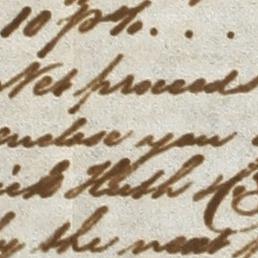 10 p%. . . .
Net proceeds
enclose you
Heth &
by the next